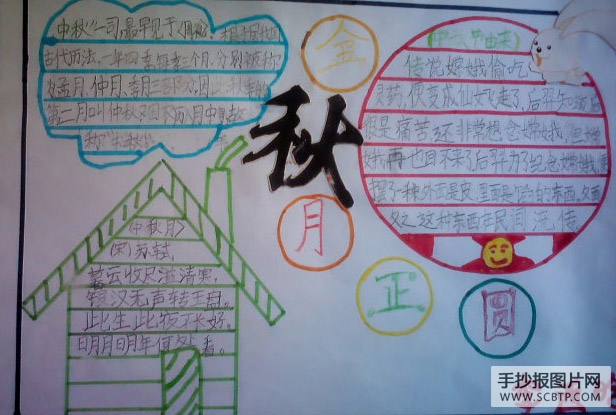 中秋一词,最早见于《周礼》。根据我
古代历法,一年四季每季三个月,分别被称
为孟月、仲月、季月三部分,因此秋季的
第二月叫仲秋,又因八月中旬,故
称"中秋"
金
秋
月
正
圆
《中秋节由来》
传说嫦娥偷吃
灵药,便变成仙女飞走了,后羿知道后
很是痛苦,还非常想念嫦娥,但嫦
娥再也回不来了,后羿为了纪念嫦娥便
摆了一种外面是皮,里面是馅的东西,久而
久之这种东西在民间流传
《中秋月》
(宋)苏轼
暮云收尽溢清寒,
银汉无声转玉盘。
此生此夜不长好,
明月明年何处看。
手抄报图片网
WWW.SCBTP.COM